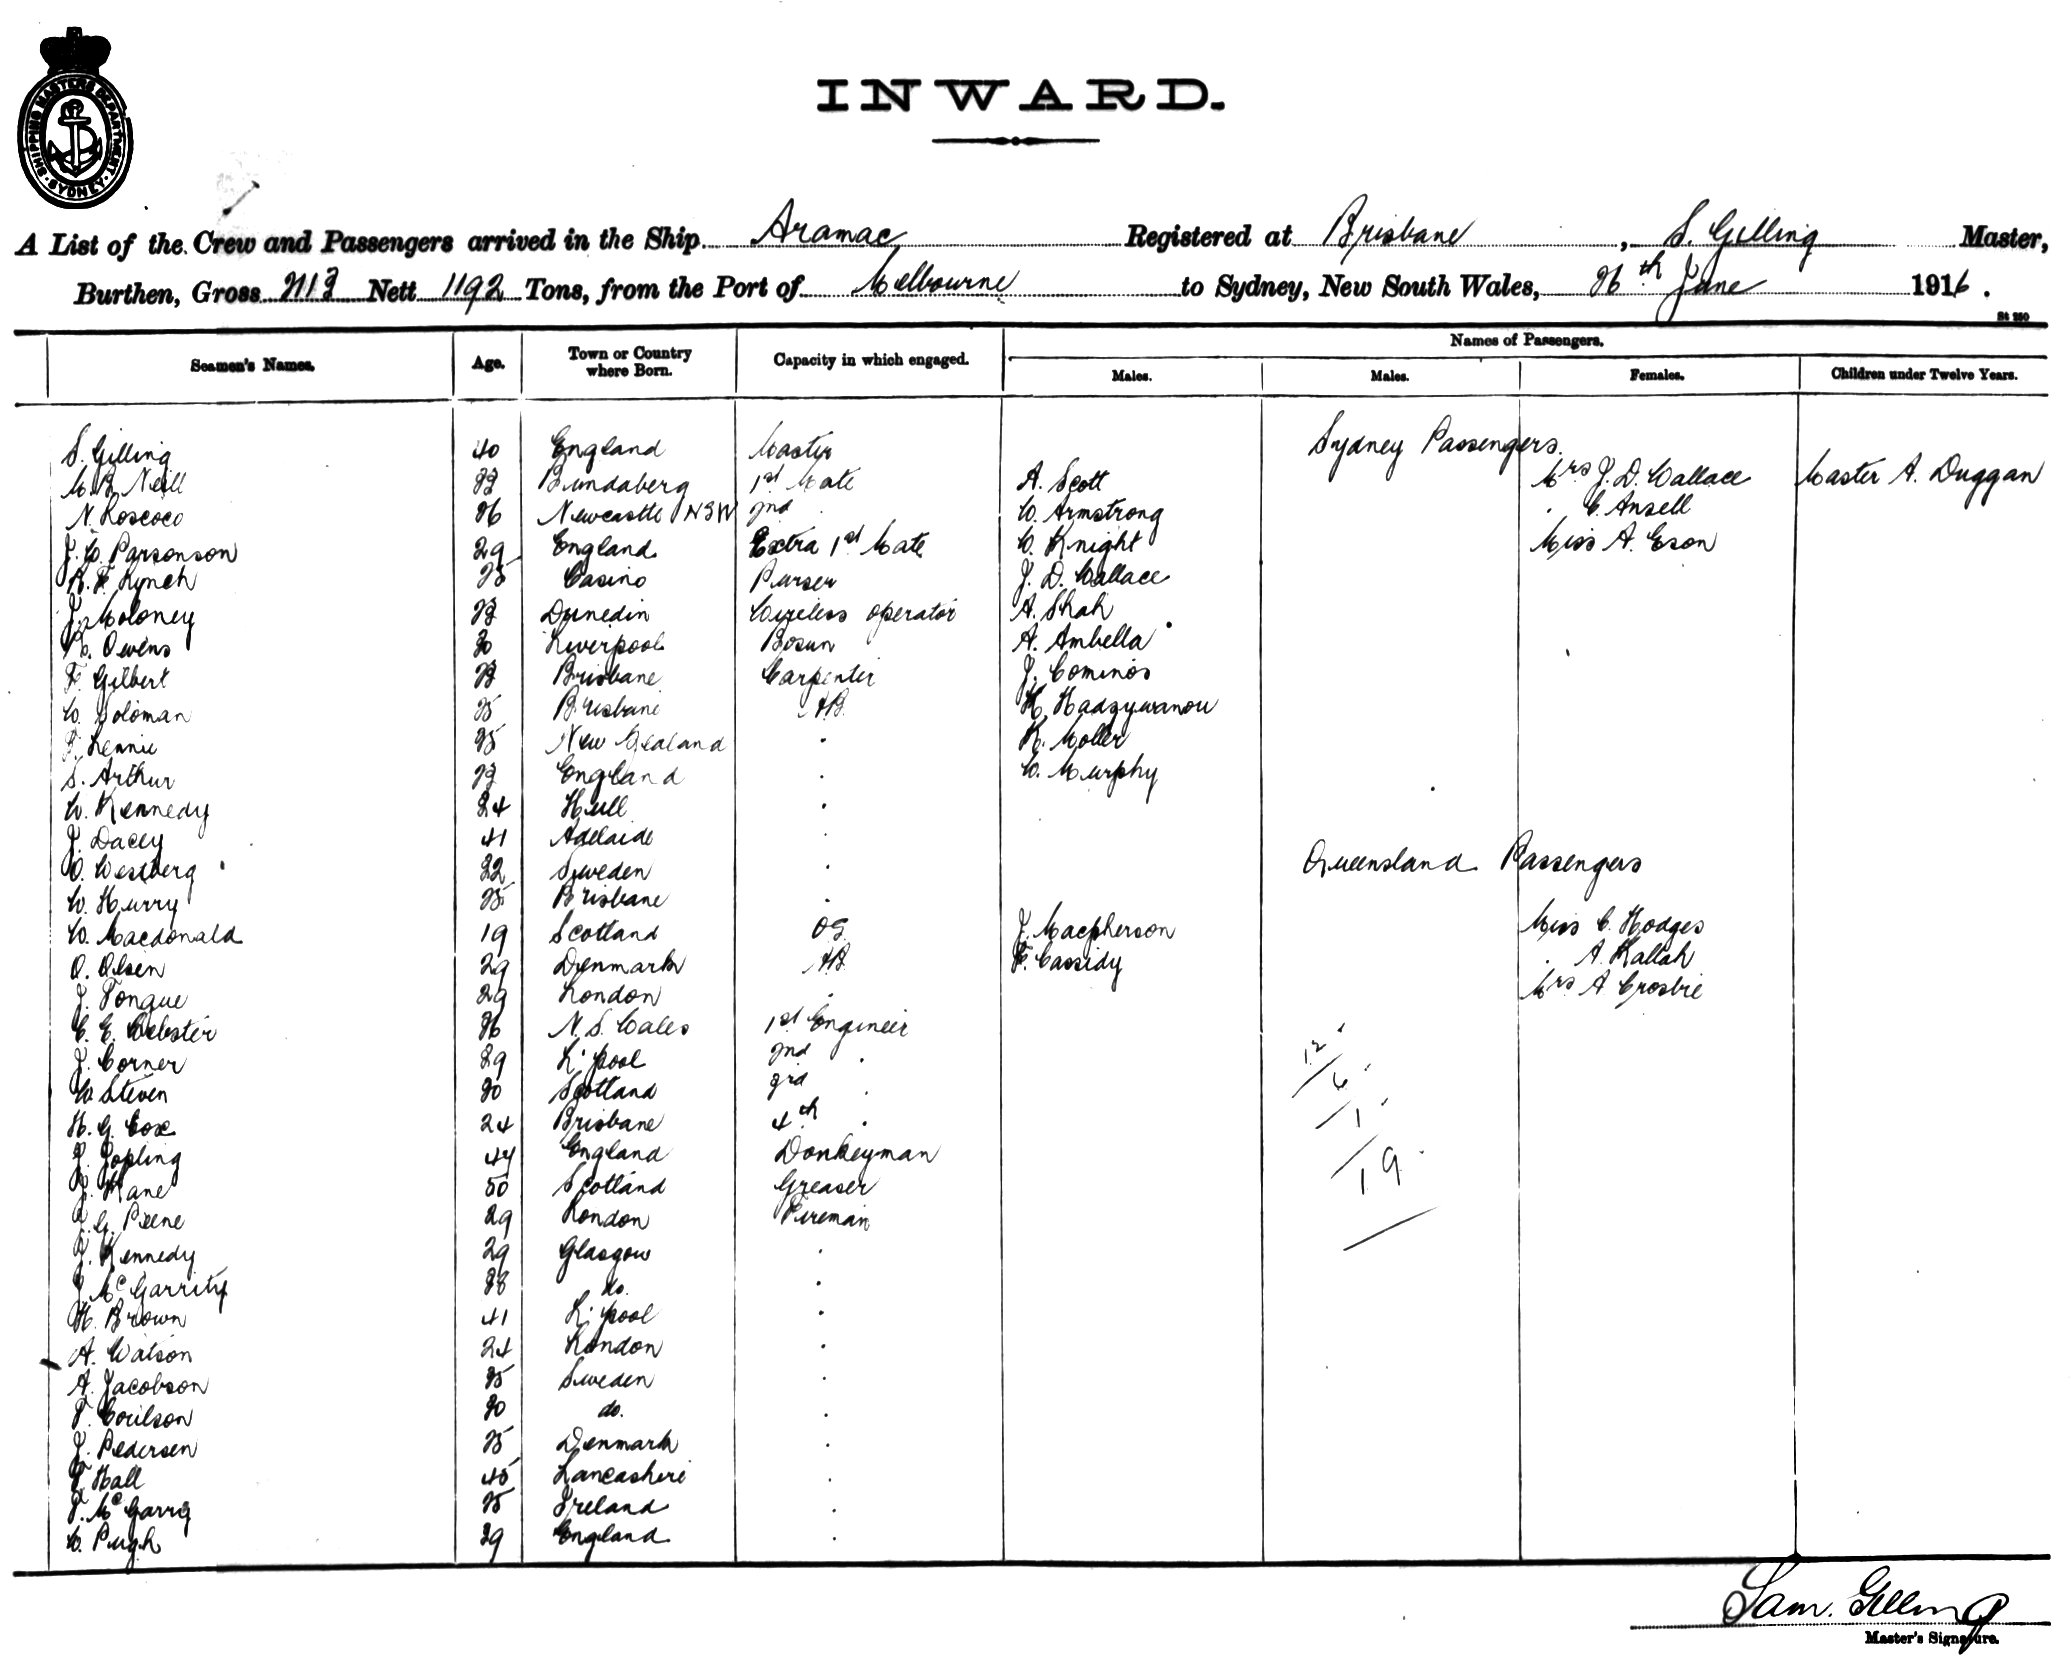 SHIPPING MASTERS DEPARTMENT. SYDNEY.
INWARD.
A List of the Crew and Passengers arrived in the Ship Aramac Registered at Brisbane, S. Gilling Master,
Burthen, Gross 2113 Nett 1192 Tons, from the Port of Melbourne to Sydney, New South Wales, 26th June 1916.
St 250
Names of Passengers.
Seamen's Names. Age. Town or Country where Born. Capacity in which engaged. Males. Males. Females. Children under Twelve Years.
Sydney Passengers.
S. Gilling 40 England Master
Neill Bundaberg 1st Mate A. Scott Mrs J. D. Wallace Master A. Duggan
N. Roscoe 26 Newcastle NSW 2nd W. Armstrong " C. Ansell
J. W. Parsonson 29 England Extra 1st Mate W. Knight Miss A. Eson
R. F. Lynch 25 Casino Purser J. D. Wallace
J. Moloney Dunedin Wireless operator A. Shah
R. Owens Liverpool Bosun A. Ambella
F. Gilbert Brisbane Carpenter J. Cominos
W. Soloman 25 Brisbane AB. H. Hadzywanou
Lennie New Zealand " K. Moller
S. Arthur England " W. Murphy
W. Kennedy 24 Hull "
J. Dacey 41 Adelaide "
Queensland Passengers
O. Westberg 22 Sweden "
W. Hurry 25 Brisbane "
W. Macdonald 19 Scotland OS J. Macpherson Miss C. Hodges
O. Olsen 29 Denmark AB F. Cassidy " A. Hallah
J. Tongue 29 London " Mrs A Crosbie
C. E. Webster N. S. Wales 1st Engineer
J. Corner L'pool 2nd "
W. Steven 30 Scotland 3rd "
H. G. Cox 24 Brisbane 4th "
J. Jopling 44 England Donkeyman
J. Kane 50 Scotland Greaser
G. Peene London Fireman
J. Kennedy 29 Glasgow "
J. McGarrity do. "
H. Brown 41 L'pool "
A. Watson 24 London "
A. Jacobson Sweden "
T. Coulson 30 do. "
J. Pedersen 25 Denmark "
T. Hall 45 Lancashire "
T. McGarry 25 Ireland "
W. Pugh England "
12
6
1
19
Sam. Gilling
Master's Signature.